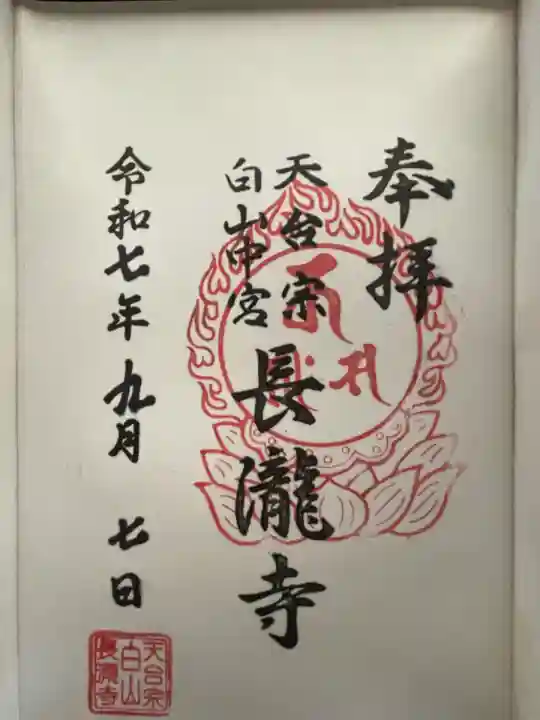 奉拝
天台宗
白山中宮
長瀧寺
令和七年九月七日
天台宗
白山
長瀧寺